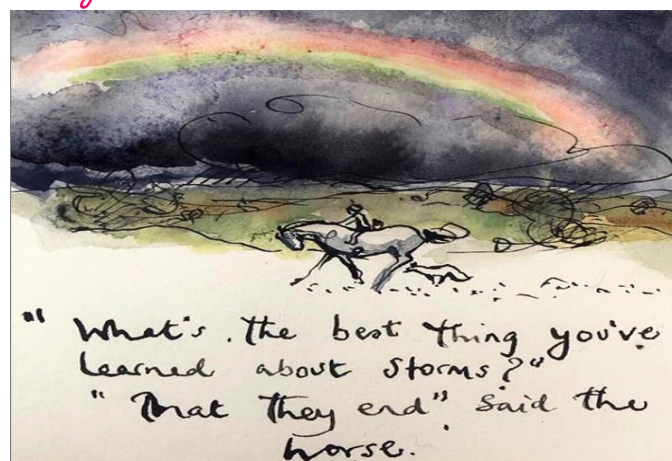 " What's the best thing you've
learned about storms?"
" That they end" said the
horse.